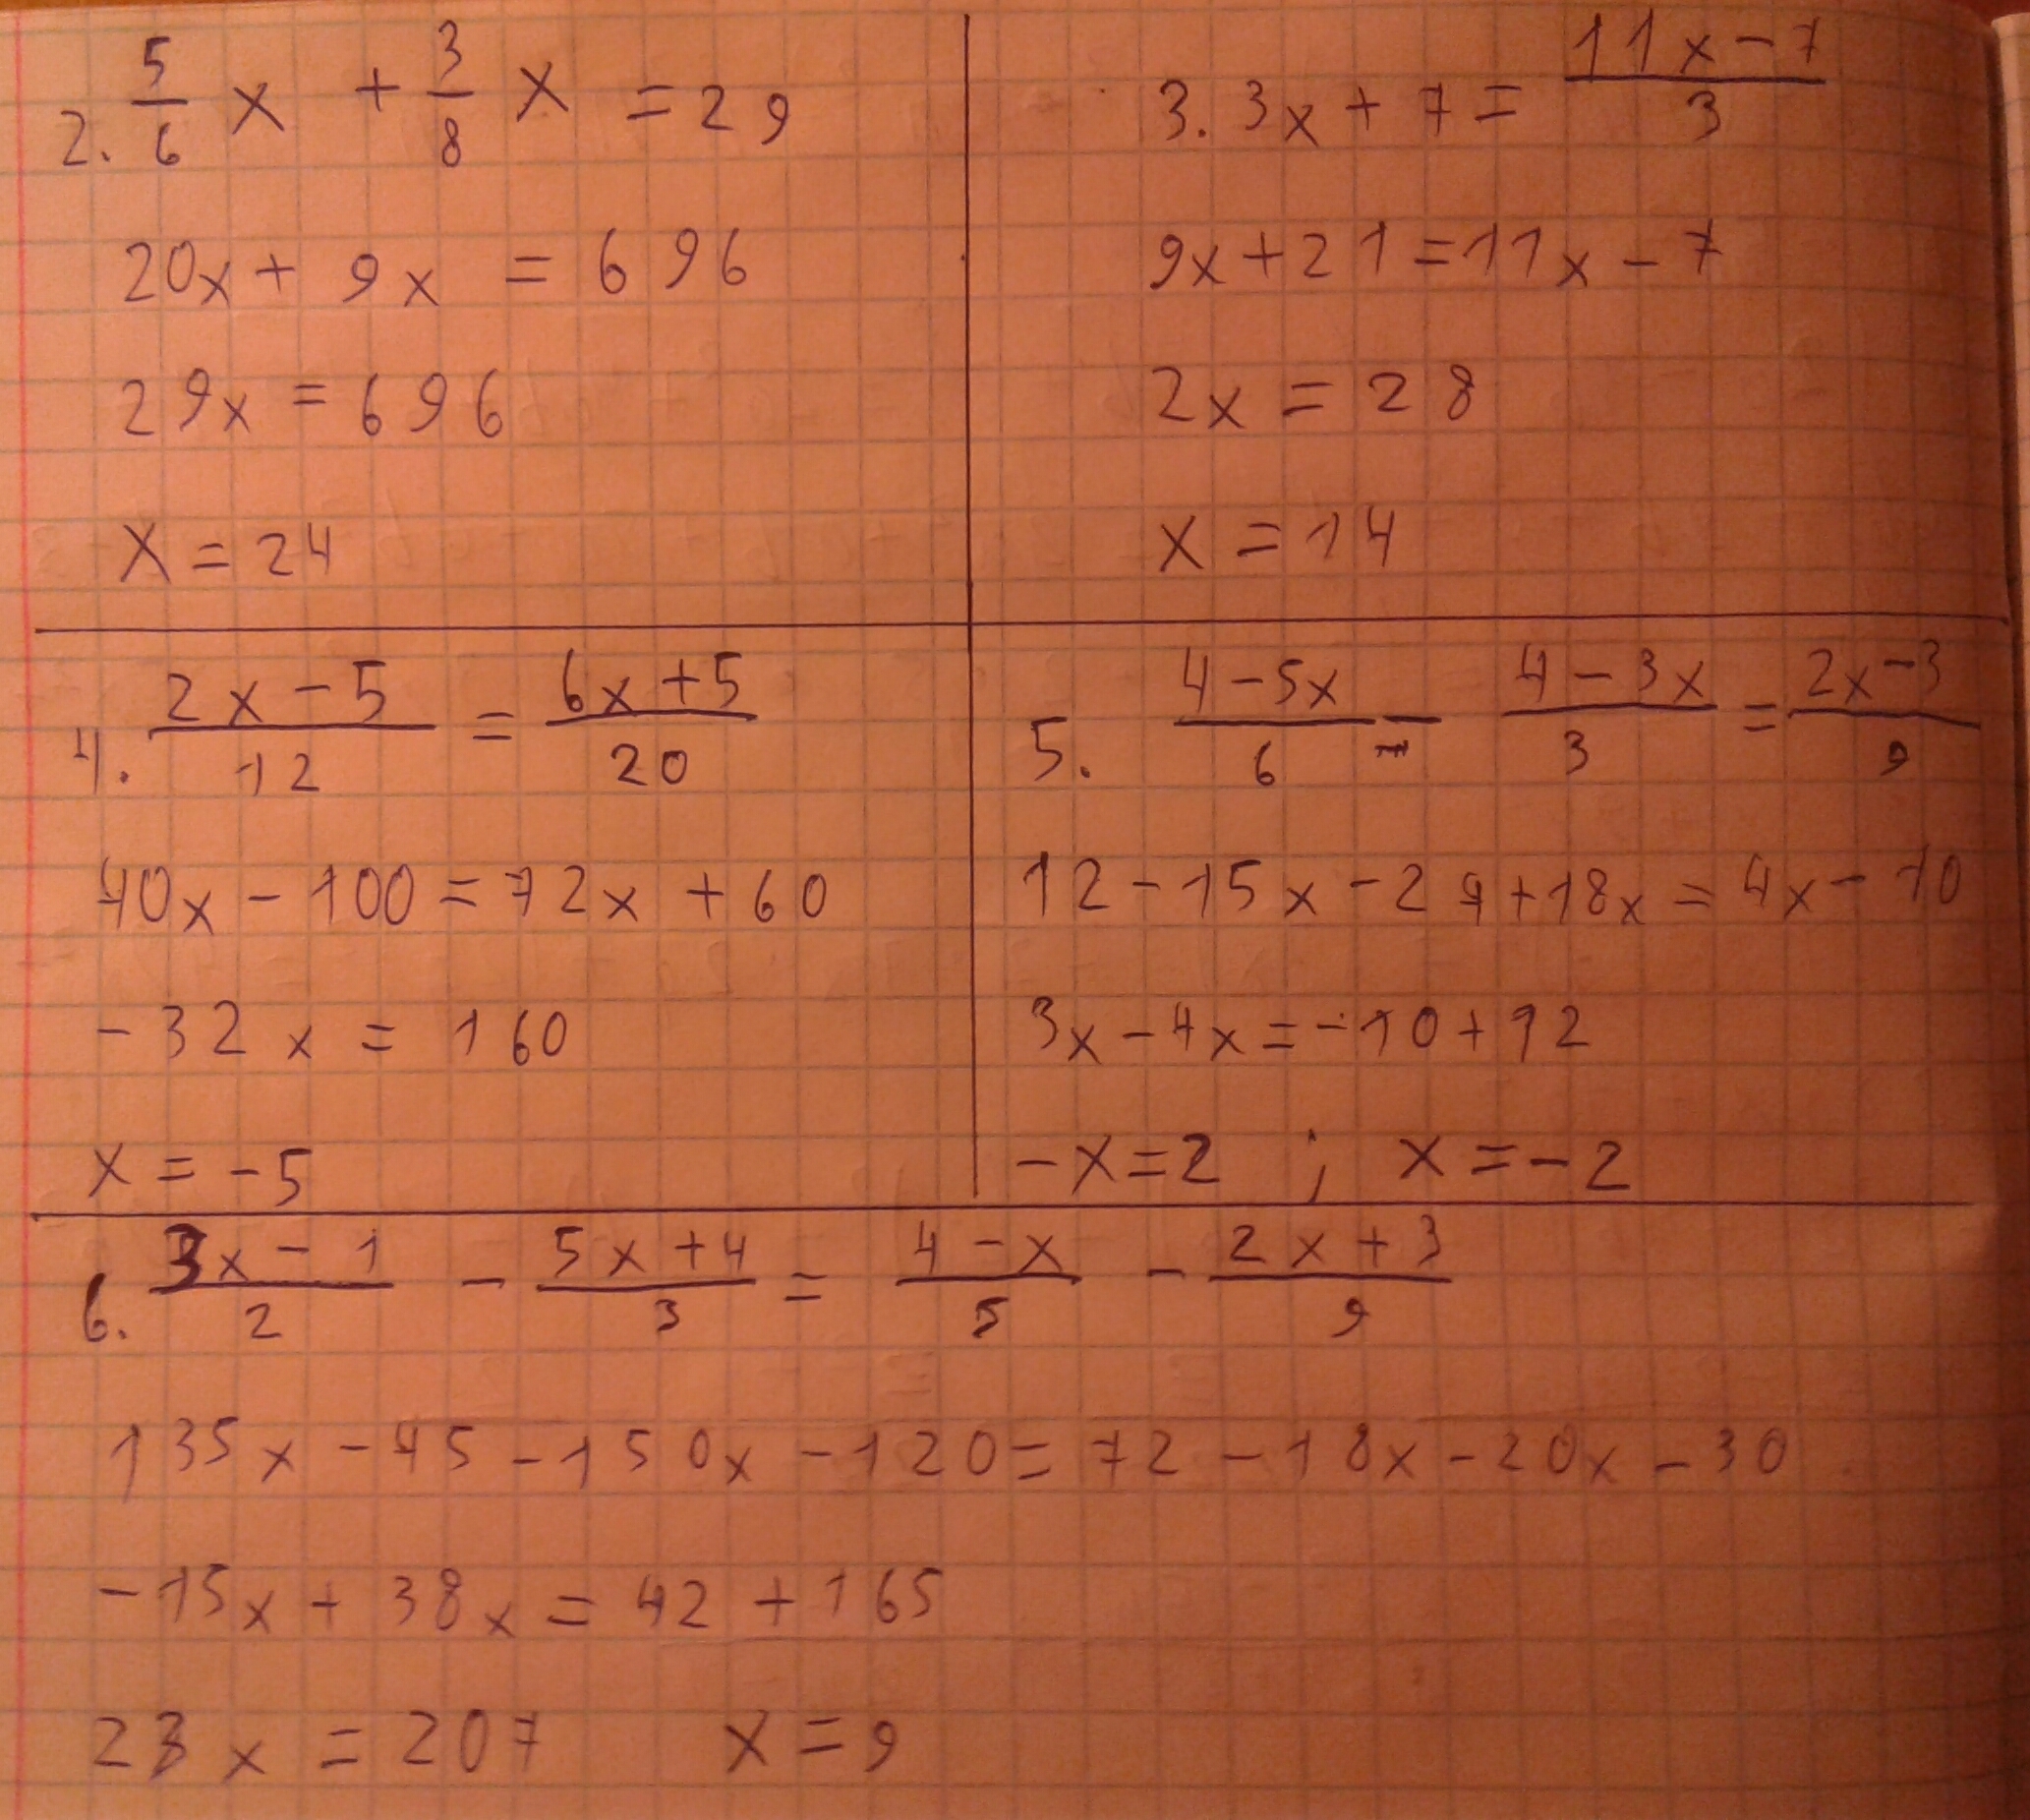 2. 5/6 x + 3/8 x = 29
20x + 9x = 696
29x = 696
x = 24
3. 3x + 7 = 11x - 7/3
9x + 21 = 11x - 7
2x = 28
x = 14
4. 2x - 5/12 = 6x + 5/20
40x - 100 = 72x + 60
-32x = 160
x = -5
5. 4 - 5x/6 - 4 - 3x/3 = 2x - 3/9
12 - 15x - 24 + 18x = 4x - 10
3x - 4x = -10 + 12
-x = 2 ; x = -2
6. 3x - 1/2 - 5x + 4/3 = 4 - x/5 - 2x + 3/9
135x - 45 - 150x - 120 = 72 - 18x - 20x - 30
-15x + 38x = 42 + 165
23x = 207 x = 9